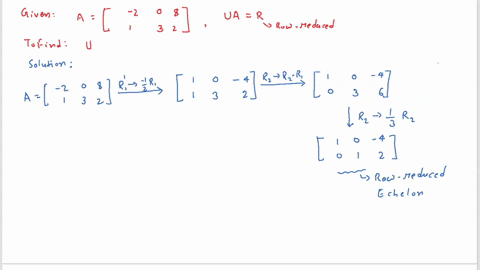 Given: A = [ -2 0 8 , UA = R
1 3 2 ] ↳ Row-reduced
To Find: U
Solution:
A = [ -2 0 8 R₁' → -1/2 R₁ [ 1 0 -4 R₂ → R₂-R₁ [ 1 0 -4
1 3 2 ] 1 3 2 ] 0 3 6 ]
↓ R₂ → 1/3 R₂
[ 1 0 -4
0 1 2 ]
↳ Row-reduced
Echelon